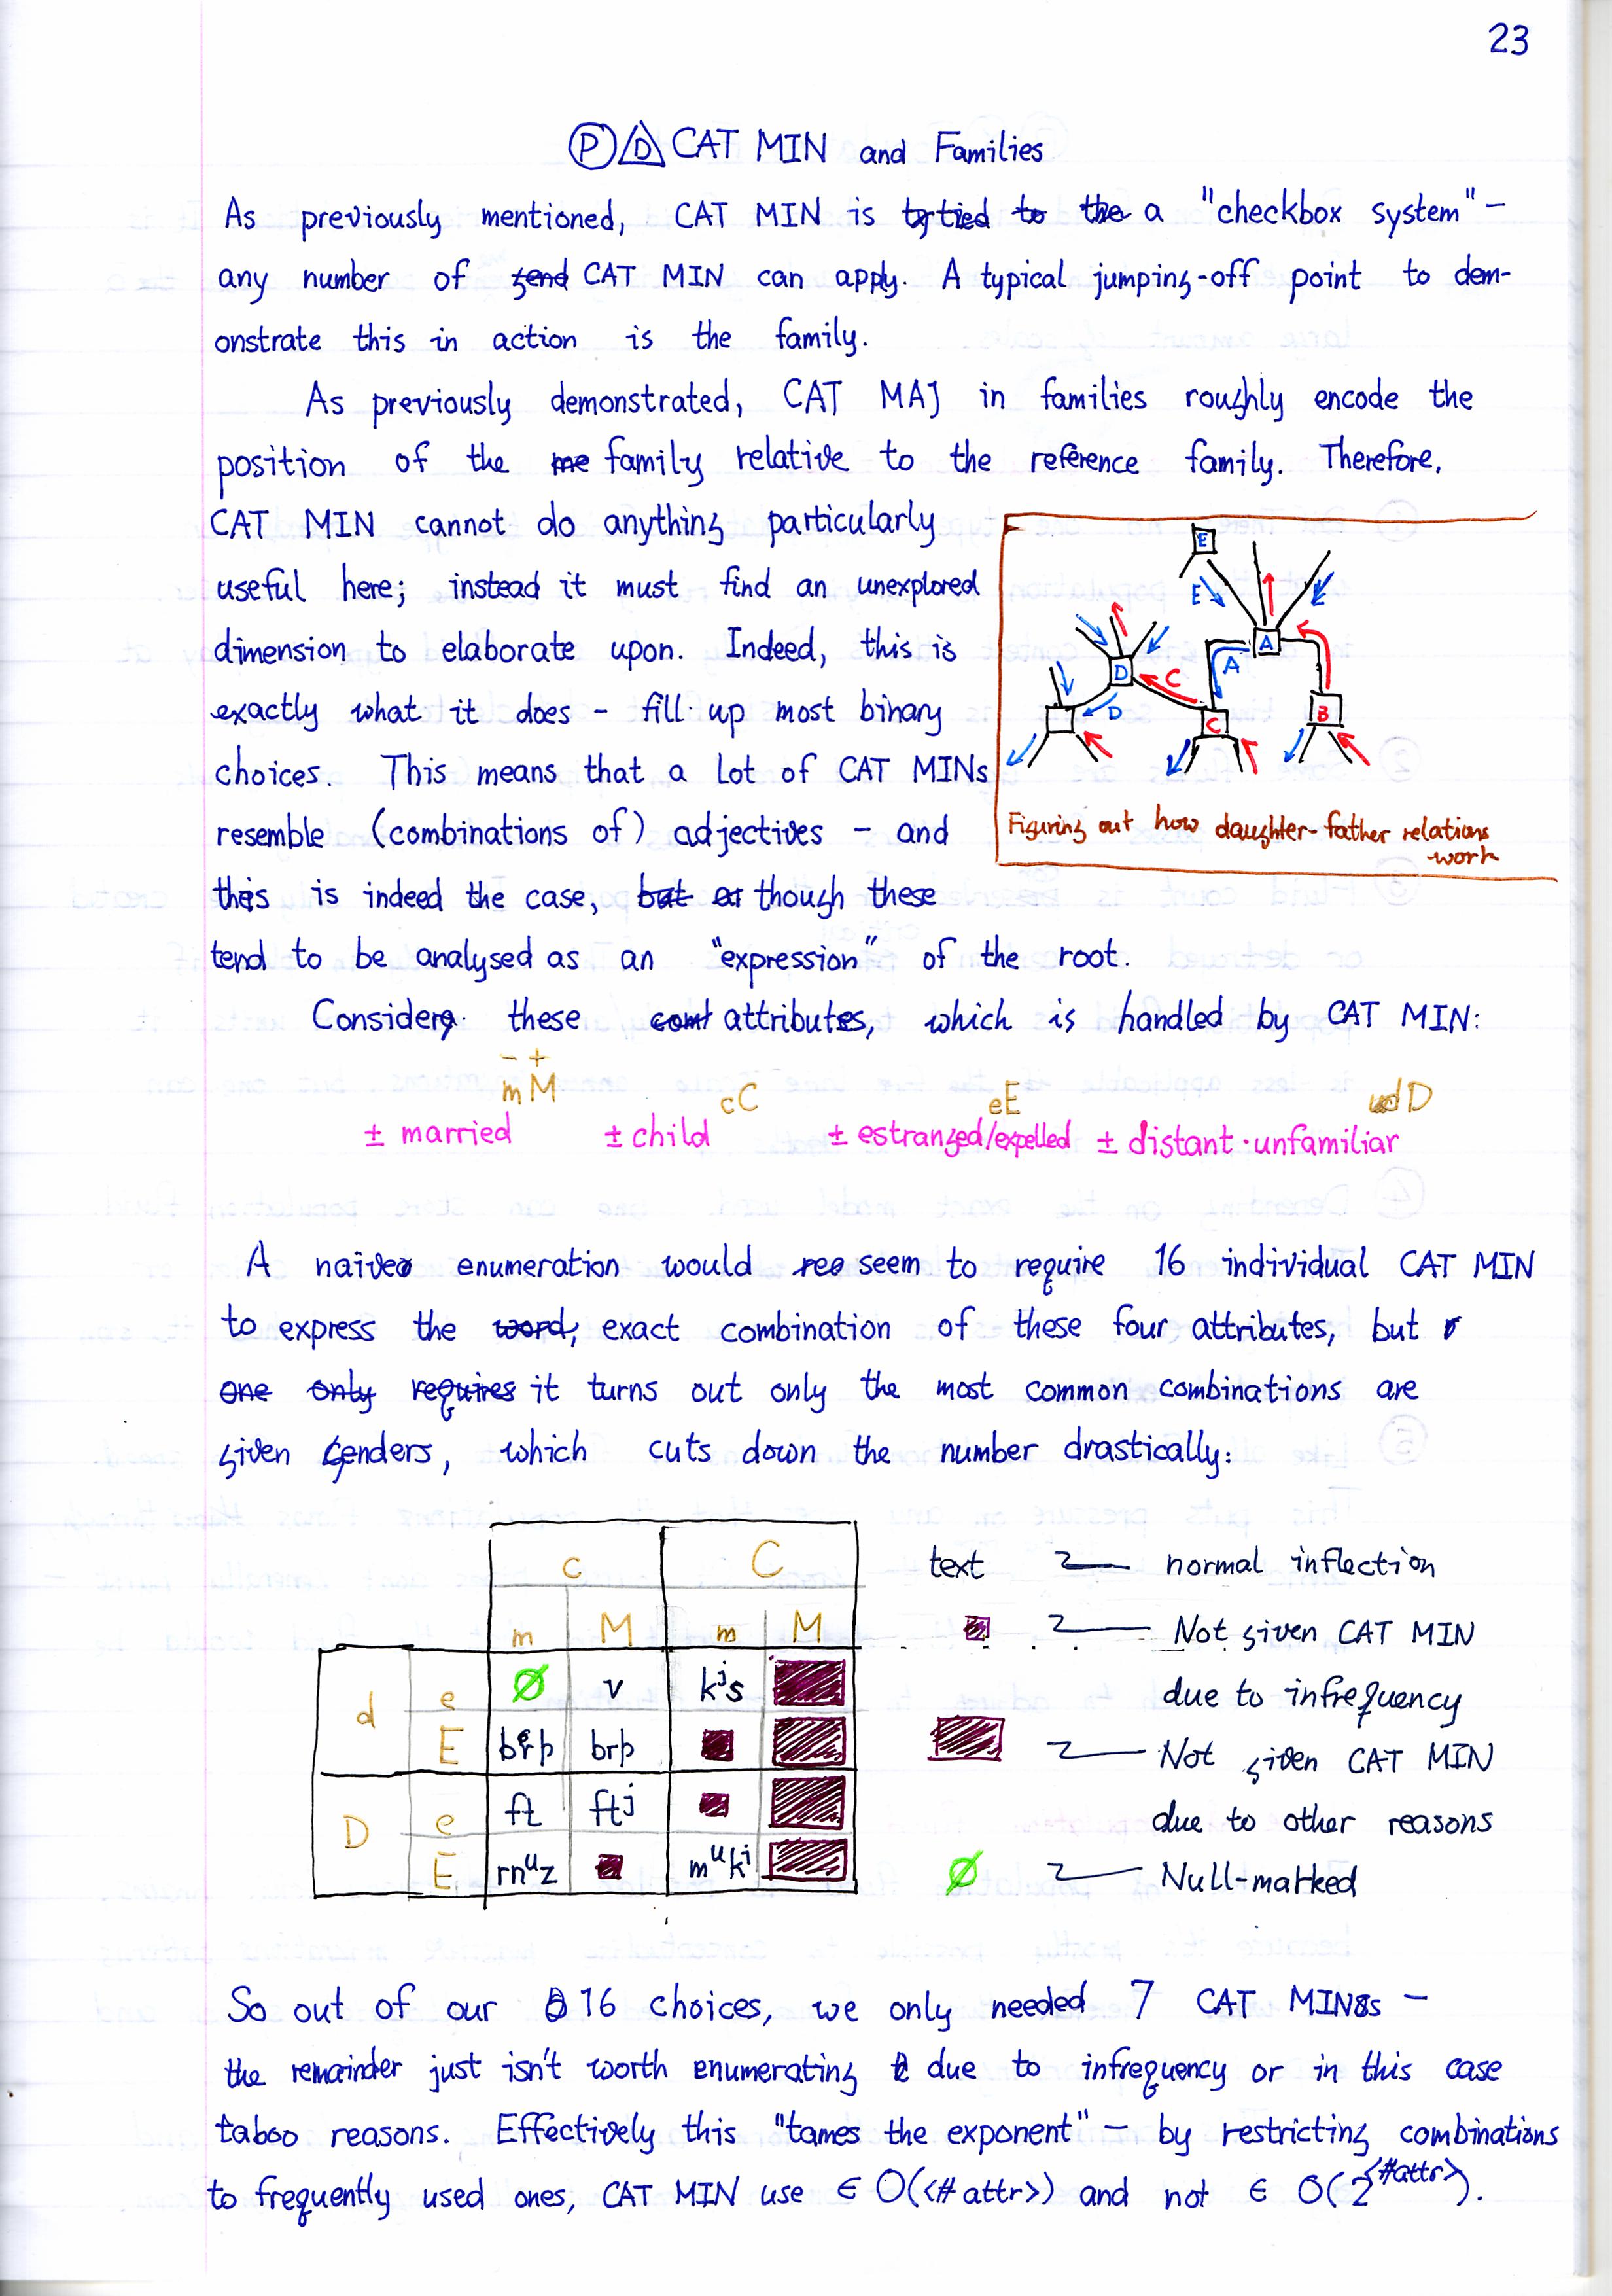 23
Ⓟ D CAT MIN and Families
As previously mentioned, CAT MIN is tied to the a "checkbox system" –
any number of CAT MIN can apply. A typical jumping-off point to dem-
onstrate this in action is the family.
As previously demonstrated, CAT MAJ in families roughly encode the
position of the me family relative to the reference family. Therefore,
CAT MIN cannot do anything particularly
useful here; instead it must find an unexplored
dimension to elaborate upon. Indeed, this is
exactly what it does – fill up most binary
choices. This means that a lot of CAT MINs
resemble (combinations of) adjectives – and
this is indeed the case, but or though these
tend to be analysed as an "expression" of the root.
E
E
E
A
A
D
C
D
C
B
Figuring out how daughter-father relations
work
Consider these attributes, which is handled by CAT MIN:
– +
m M
c C
e E
d D
± married ± child ± estranged/expelled ± distant·unfamiliar
A naïve enumeration would seem to require 16 individual CAT MIN
to express the word, exact combination of these four attributes, but
one only requires it turns out only the most common combinations are
given Genders, which cuts down the number drastically:
c C
m M m M
d e ∅ v kʲs
E brþ brþ
D e ft ftʲ
E rnᵘz mᵘkⁱ
text normal inflection
Not given CAT MIN
due to infrequency
Not given CAT MIN
due to other reasons
∅ Null-marked
So out of our 16 choices, we only needed 7 CAT MINs –
the remainder just isn't worth enumerating due to infrequency or in this case
taboo reasons. Effectively this "tames the exponent" – by restricting combinations
to frequently used ones, CAT MIN use ∈ O(<# attr>) and not ∈ O(2^<#attr>).